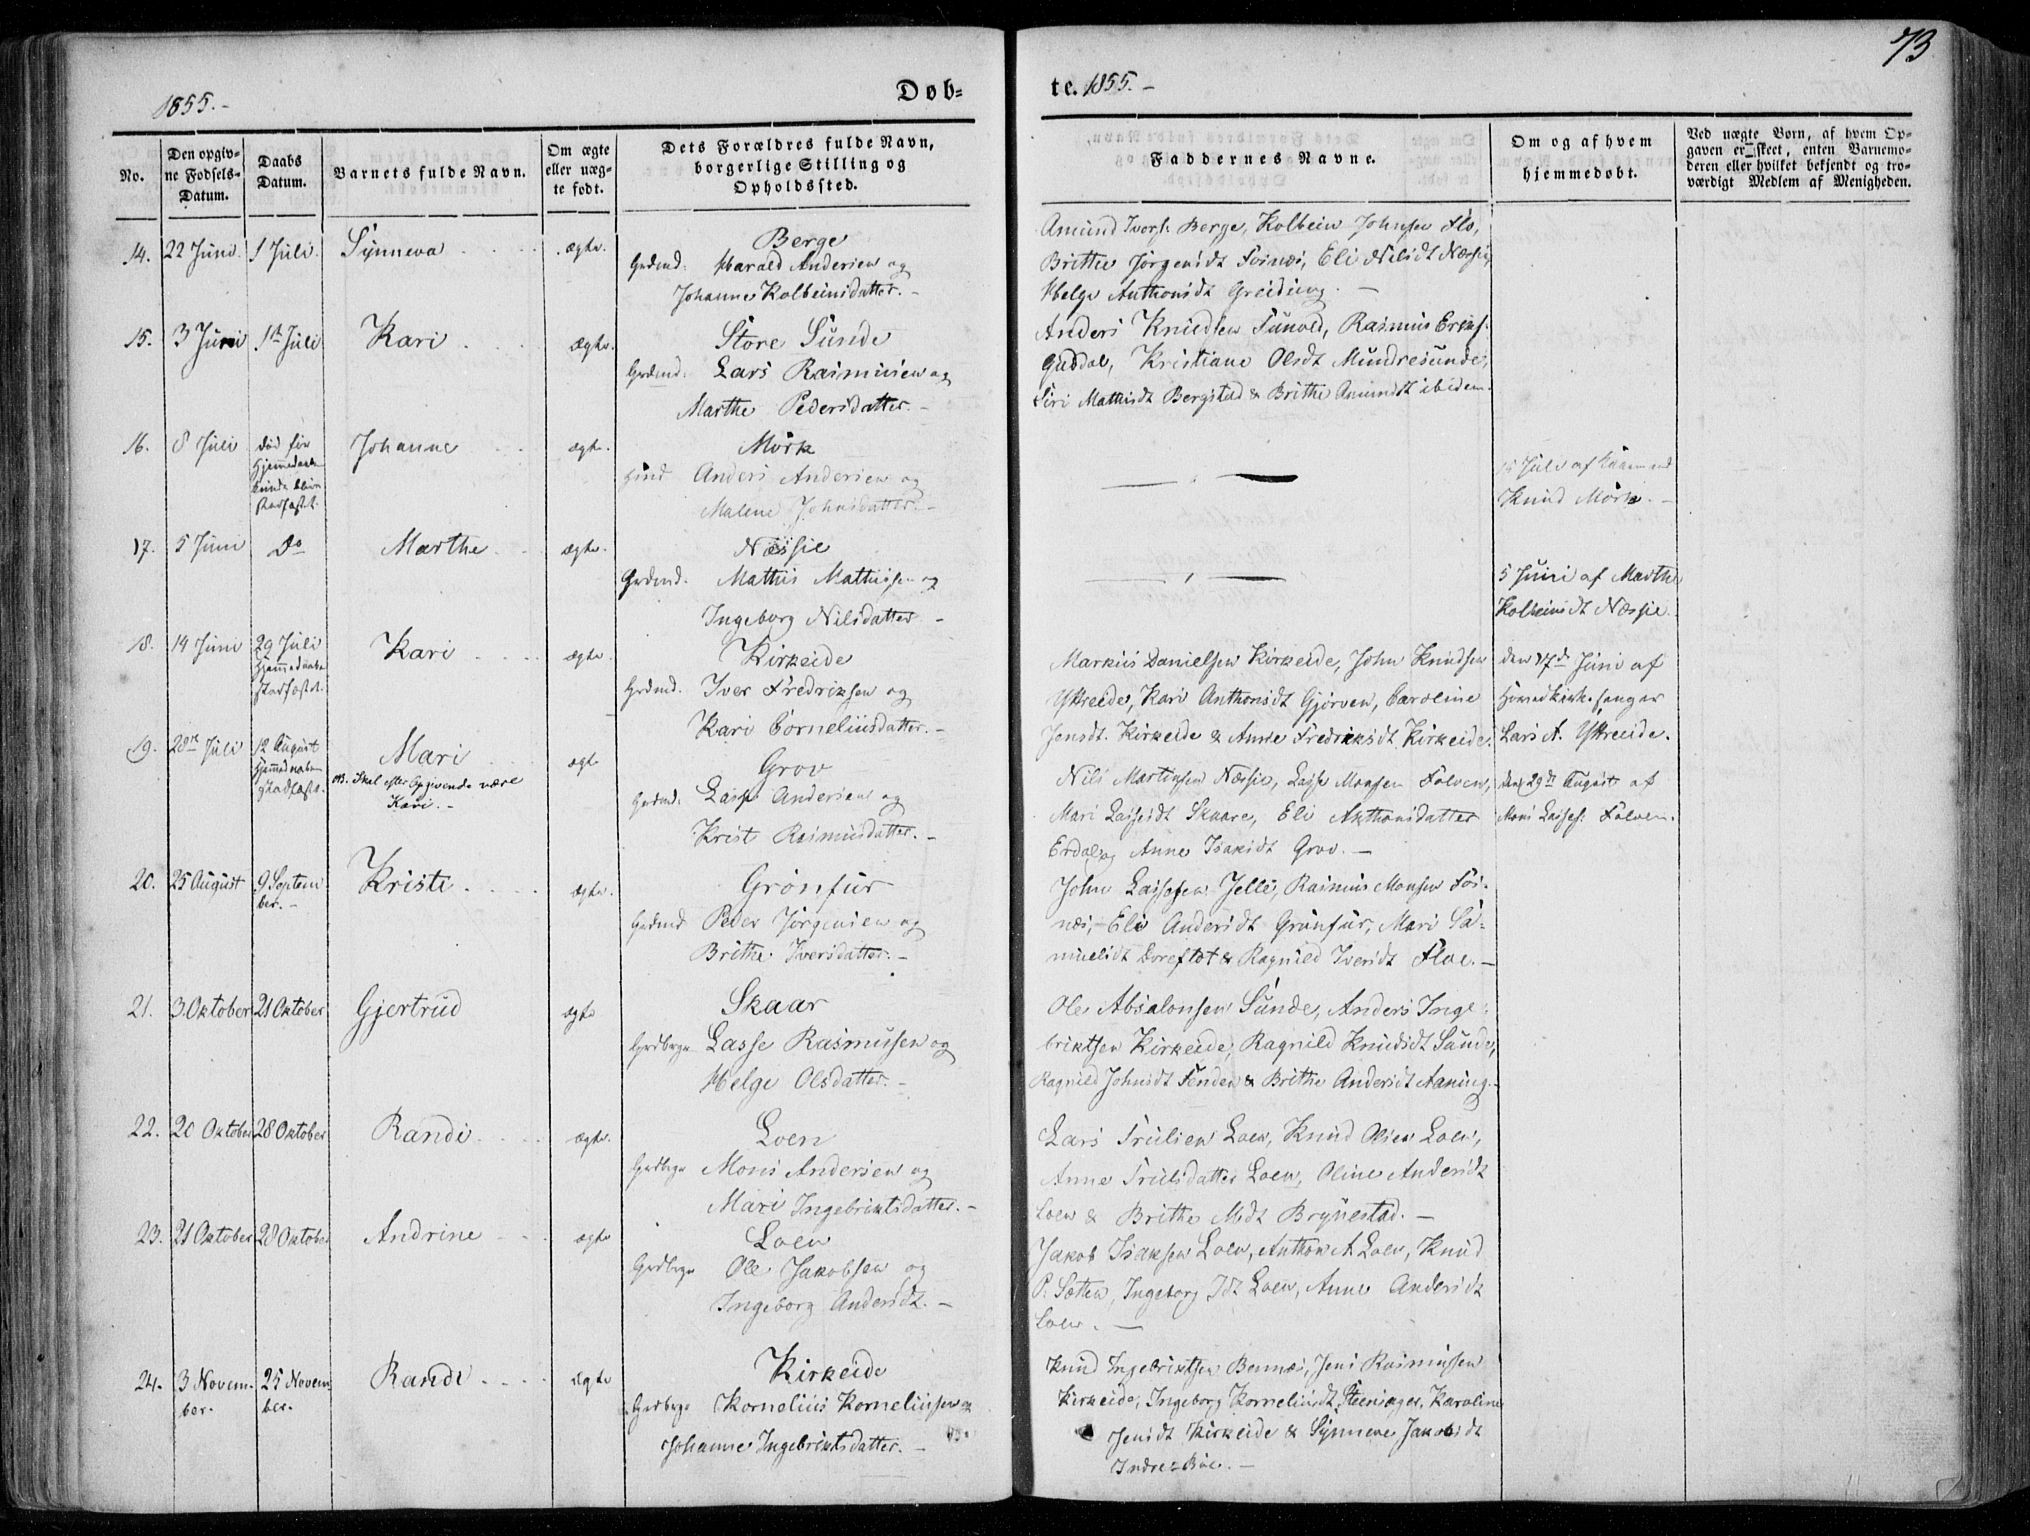 73
1855.-
Døb-
te. 1855.-
No.
Den opgiv-
ne Fødsels-
Datum.
Daabs
Datum.
Barnets fulde Navn.
Om ægte
eller uæg-
te født.
Dets Forældres fulde Navn,
borgerlige Stilling og
Opholdssted.
Faddernes Navne.
Om og af hvem
hjemmedøbt.
Ved uægte Born, af hvem Op-
gaven er skeet, enten Barnemo-
deren eller hvilket bekjendt og tro-
værdigt Medlem af Menigheden.
14. 22 Juni 1 Juli. Synneva ægte.
Berge
Grdmd. Harald Andersen og
Johanne Kolbeinsdatter.-
Amund Ivers. Berge, Kolbein Johnsen Flo,
Brithe Jørgensdt Fosnæs, Eli Nilsdt Næssie,
Helge Anthonsdt Greiding.-
15. 3 Juni 1st Juli Kari ægte.
Store Sunde
Grdmd. Lars Rasmusen og
Marthe Pedersdatter.-
Anders Knudsen Tunold, Rasmus Eriks.
Guddal, Kristiane Olsdt Mundresunde,
Siri Mathisdt Bergstad & Brithe Amundt ibidem.
16. 8 Juli død før
Hjemmedaaben
kunde blive
stadfæstet. Johanne ægte.
Mörk
Hmd Anders Andersen og
Malene Johnsdatter.-
15 Juli af
Knud Mörk.-
17. 5 Juni Do Marthe ægte.
Næssie
Grdmd. Mathis Mathissen og
Ingeborg Nilsdatter -
5 Juni af Marthe
Kolbeinsdt Næssie.
18. 14 Juni 29 Juli
Hjemmedaaben
stadfæstet. Kari ægte.
Kirkeide
Grdmd. Iver Fredriksen og
Kari Corneliusdatter.-
Markus Danielsen Kirkeide, John Knudsen
Yttreeide, Kari Anthonsdt Gjörven, Caroline
Jensdt. Kirkeide & Anne Fredriksdt Kirkeide.
den 17d Juni af
Hovedkirkesanger
Lars A. Yttreeide.
19. 28de Juli 12 August
Hjemmedaaben
stadfæstet. Mari
NB. Skal efter Opgivende være
Kari.- ægte
Grov
Grdmd. Lasse Andersen og
Krist Rasmusdatter.-
Nils Martinsen Næssie, Lasse Monsen Folven,
Mari Lassesdt Skaare, Eli Anthonsdatter
Erdal og Anne Isaksdt Grov.-
den 29de August af
Mons Lasses. Folven.
20. 25 August 9 Septem
ber.- Kristi ægte.
Grönfur
Grdmd Peder Jörgensen og
Brithe Iversdatter.-
John Lassesen Jelle, Rasmus Monsen Fos-
næs, Eli Andersdt Grönfur, Mari Sa-
muelsdt Doreflot & Ragnild Iversdt Floe.-
21. 3. Oktober 21 Oktober Gjertrud ægte
Skaar
Grdbrgr Lasse Rasmussen og
Helge Olsdatter.-
Ole Absalonsen Sunde, Anders Inge-
briktsen Kirkeide, Ragnild Knudsdt Sunde,
Ragnild Johnsdt Tenden & Brithe Andersdt Aaning.-
22. 20 Oktober 28 Oktober Randi ægte.
Loen
Grdbrgr Mons Andersen og
Mari Ingebriktsdatter.-
Lars Trulsen Loen, Knud Olsen Loen,
Anne Trulsdatter Loen, Oline Andersdt
Loen & Brithe Mdt Brynestad.-
23. 21 Oktober 28 Oktober Andrine ægte
Loen
Grdbrgr Ole Jakobsen og
Ingeborg Andersdt.-
Jakob Isaksen Loen, Anthon A Loen, Knud
P. Sæten, Ingeborg Jdt Loen, Anne Andersdt
Loen.-
24. 3 Novem-
ber. 25 Novem
ber. Randi ægte
Kirkeide
Grdbrgr Kornelius Korneliussen og
Johanne Ingebriktsdatter.-
Knud Ingebriktsen Bennæs, Jens Rasmussen
Kirkeide, Ingeborg Korneliusdt Steensager, Karoline
Jensdt Kirkeide & Synneve Jakobsdt
Indre-Böe.-